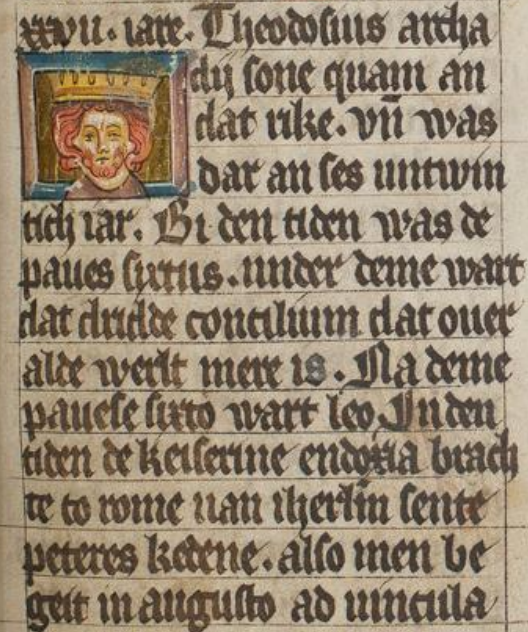 xxvii. iare. Theodosius archa
dij sone quam an
dat rike. vn̄ was
dar an ses untwin
tich iar. Bi den tiden was de
paues sixtus. under deme wart
dat dridde concilium dat ouer
alde werlt mere is. Na deme
pauese sixto wart leo. In den
tiden de keiserine eudoxia brach
te to rome uan iherl̄m sente
peteres ketene. also men be
geit in augusto ad uincula